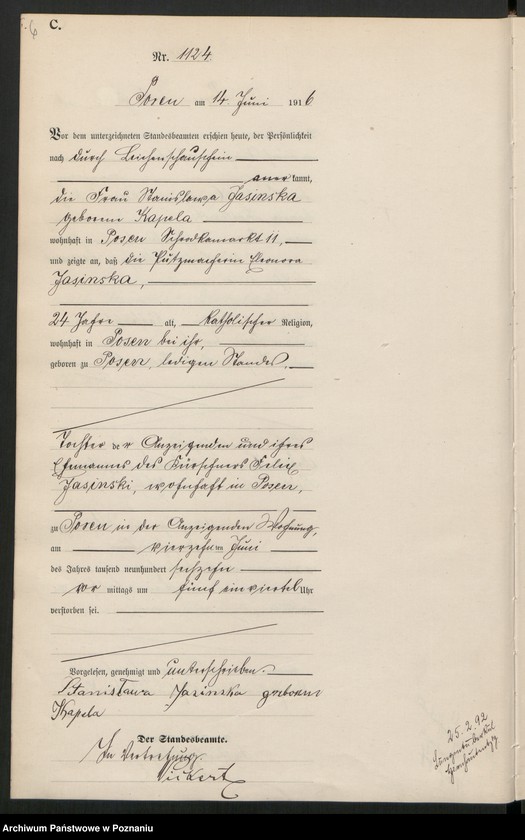 C.
Nr. 1124
Posen am 14 Juni 1916
Vor dem unterzeichneten Standesbeamten erschien heute, der Persönlichkeit
nach durch Leichenschauschein
anerkannt,
die Frau Stanislawa Jasinska
geborene Kapela
wohnhaft in Posen Schrodkamarkt 11,
und zeigte an, daß die Putzmacherin Eleonora
Jasinska,
24 Jahre alt, katholischer Religion,
wohnhaft in Posen bei ihr,
geboren zu Posen, ledigen Standes,
Tochter der Anzeigenden und ihres
Ehemannes des Kürschners Felix
Jasinski, wohnhaft in Posen,
zu Posen in der Anzeigenden Wohnung,
am vierzehnten Juni
des Jahres tausend neunhundert sechzehn
vor mittags um fünf einviertel Uhr
verstorben sei.
Vorgelesen, genehmigt und unterschrieben.
Stanisława Jasinska geborene
Kapela
Der Standesbeamte.
In Vertretung
25.2.92
Archiwum Państwowe w Poznaniu